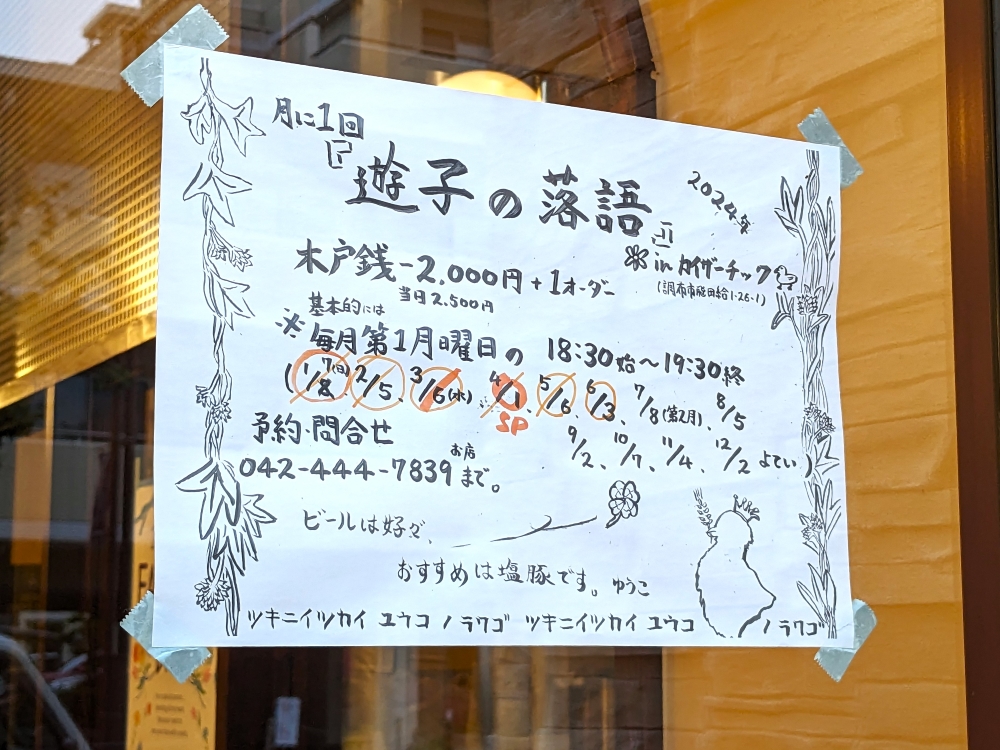 月に1回
『遊子の落語』
2024年
in カイザーチック
(調布市飛田給1-26-1)
木戸銭-2.000円+1オーダー
当日2.500円
基本的には
※毎月第1月曜日の 18:30始〜19:30終
(1/8(月)、2/5、3/6(水)、4/1、5/6、6/3、7/8(第2月)、8/5
SP
9/2、10/7、11/4、12/2 よてい)
予約・問合せ
042-444-7839 お店まで。
ビールは好々、
おすすめは塩豚です。ゆうこ
ツキニイツカイ ユウコノラクゴ ツキニイツカイ ユウコノラクゴ